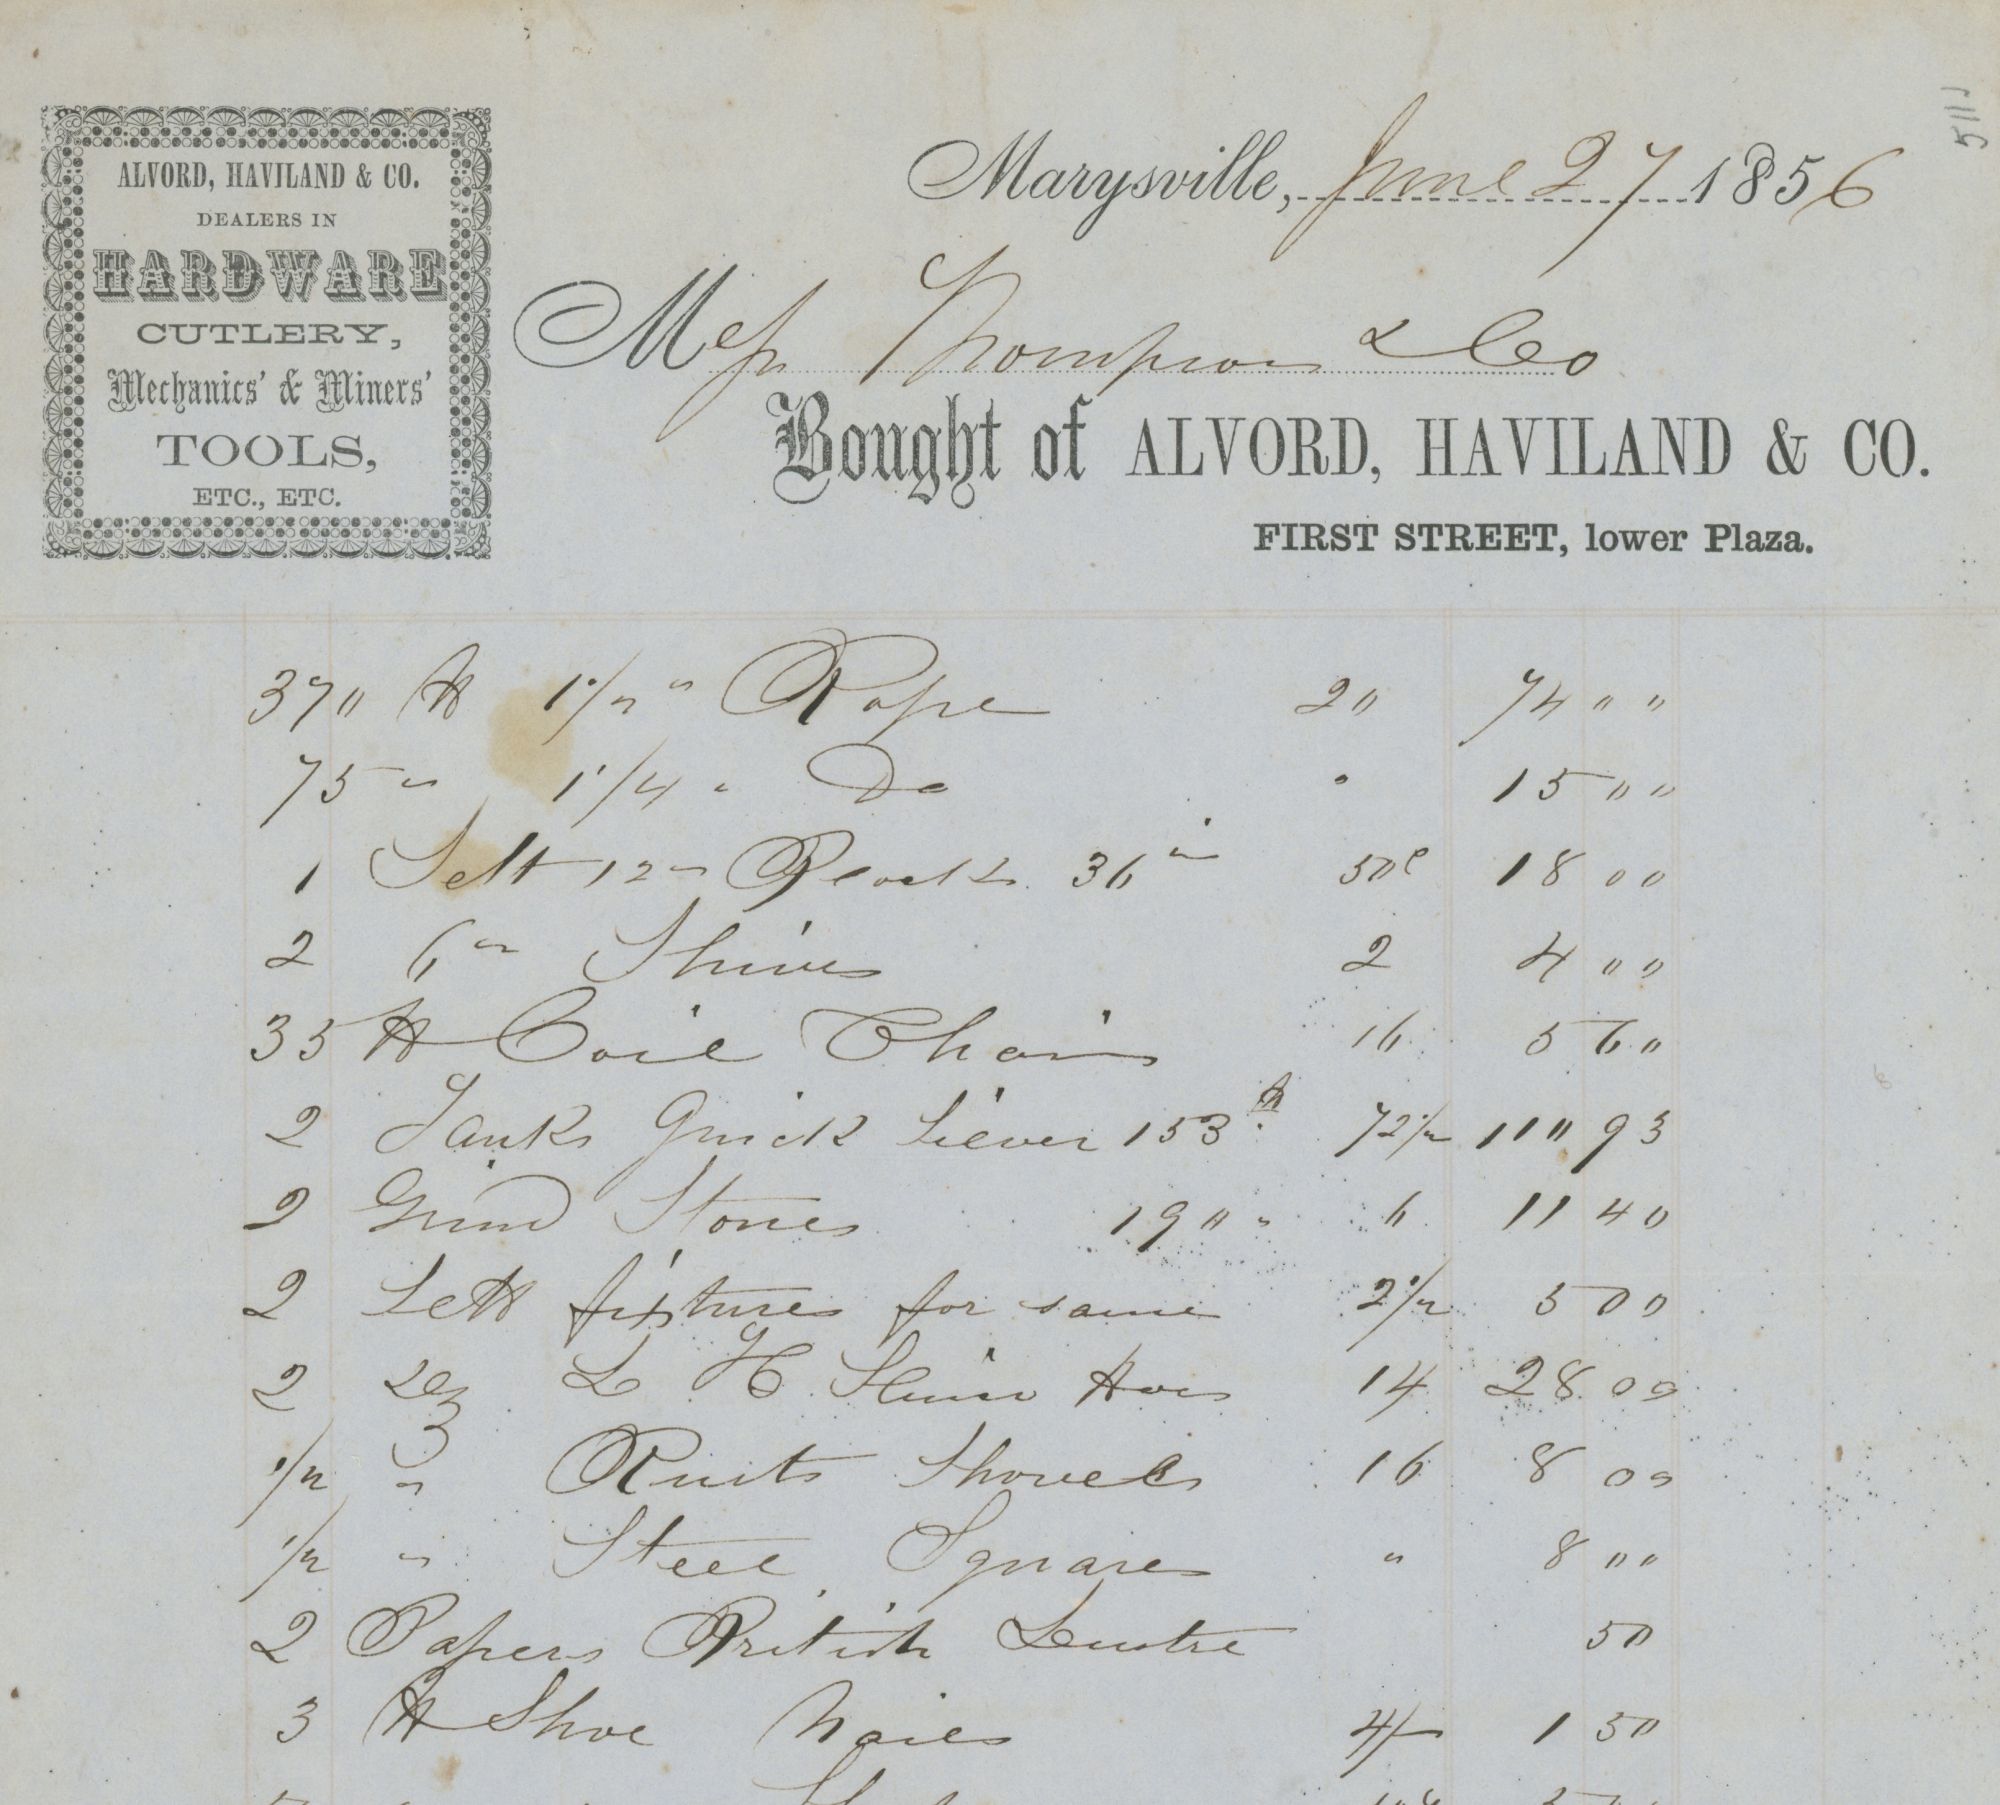 ALVORD, HAVILAND & CO.
DEALERS IN
HARDWARE
CUTLERY,
Mechanics' & Miners'
TOOLS,
ETC., ETC.
5111
Marysville, June 27 1856
Mess Thompson & Co
Bought of ALVORD, HAVILAND & CO.
FIRST STREET, lower Plaza.
370 lb 1 1/2 " Rope 20 74 " "
75 " 1 1/4 " Do " 15 00
1 Sett 12 in Blocks 36 in 50c 18 00
2 6 in Shives 2 4 00
35 lb Coil Chain 16 5 60
2 Tanks Quick Silver 153 lb 72 1/2 110 93
2 Grind Stones 190 " 6 11 40
2 Sett fixtures for same 2 1/2 5 00
2 dz L H Sluice Hoes 14 28 00
1/2 " Rusts Shovels 16 8 00
1/2 " Steel Squares " 8 00
2 Papers British Lustre 50
3 lb Shoe Nails 4/- 1 50